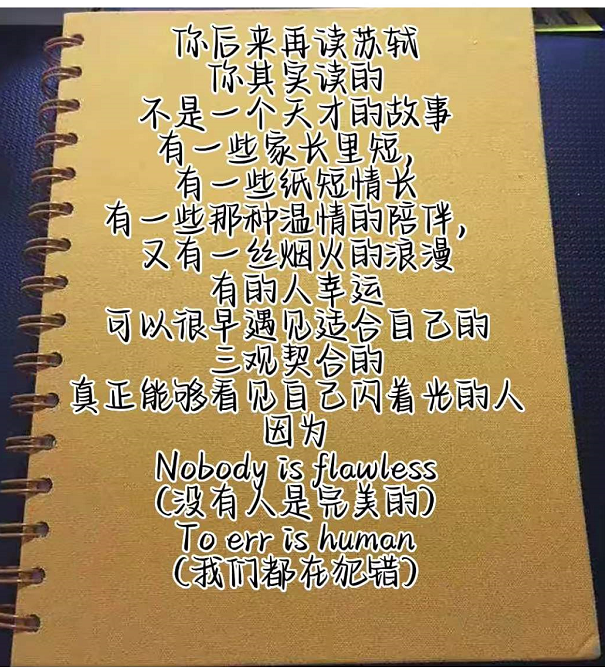 你后来再读苏轼
你其实读的
不是一个天才的故事
有一些家长里短，
有一些纸短情长
有一些那种温情的陪伴，
又有一丝烟火的浪漫
有的人幸运
可以很早遇见适合自己的
三观契合的
真正能够看见自己闪着光的人
因为
Nobody is flawless
(没有人是完美的)
To err is human
(我们都在犯错)